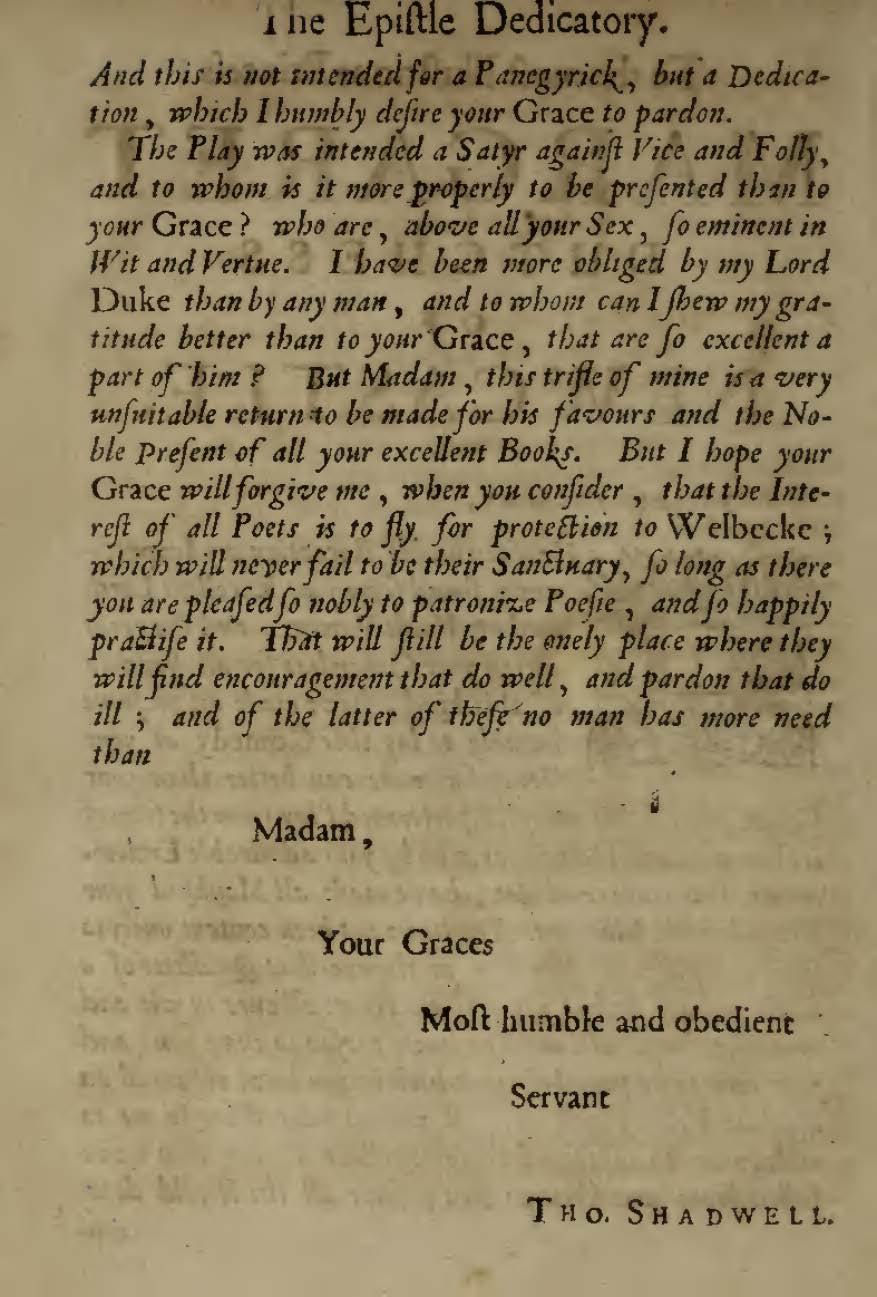 The Epiſtle Dedicatory.
And this is not intended for a Panegyrick, but a Dedica-
tion, which I humbly deſire your Grace to pardon.
The Play was intended a Satyr againſt Vice and Folly,
and to whom is it more properly to be preſented than to
your Grace? who are, above all your Sex, ſo eminent in
Wit and Vertue. I have been more obliged by my Lord
Duke than by any man, and to whom can I ſhew my gra-
titude better than to your Grace, that are ſo excellent a
part of him? But Madam, this trifle of mine is a very
unſuitable return to be made for his favours and the No-
ble Preſent of all your excellent Books. But I hope your
Grace will forgive me, when you conſider, that the Inte-
reſt of all Poets is to fly for protection to Welbecke;
which will never fail to be their Sanctuary, ſo long as there
you are pleaſed ſo nobly to patronize Poeſie, and ſo happily
practiſe it. That will ſtill be the onely place where they
will find encouragement that do well, and pardon that do
ill; and of the latter of theſe no man has more need
than
Madam,
Your Graces
Moſt humble and obedient
Servant
THO. SHADWELL.